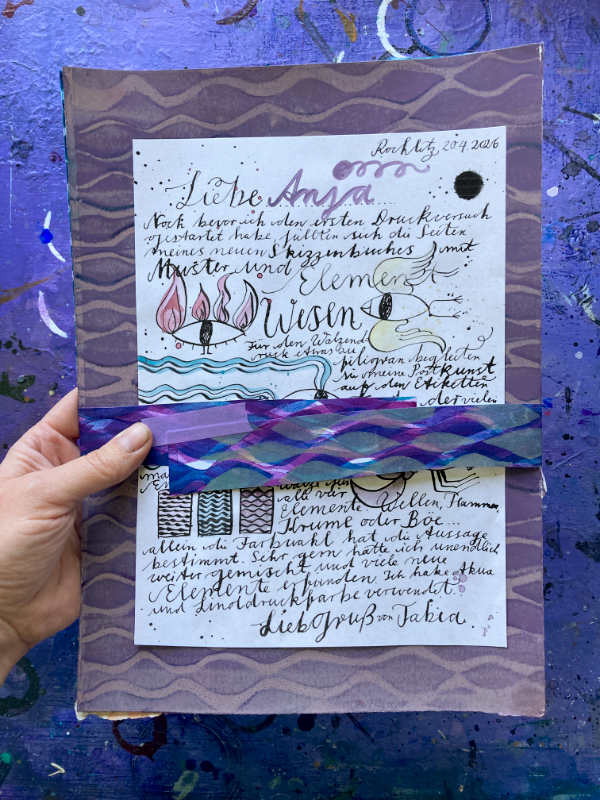 Rochlitz 20.4.2026
Liebe Anja
Noch bevor ich den ersten Druckversuch
gestartet habe füllten sich die Seiten
meines neuen Skizzenbuches mit
Muster und Element
Wesen
Für den Walzend
ruck etwas viel
filigran begleiten
sie meine Postkunst
auf den Etiketten
der vielen
alle vier
Elemente Wellen, Flammen,
Krume oder Böe...
allein die Farbwahl hat die Aussage
bestimmt. Sehr gern hätte ich unendlich
weiter gemischt und viele neue
Elemente erfunden. Ich habe Akua
und Linoldruckfarbe verwendet.
Lieb Gruß von Tabea